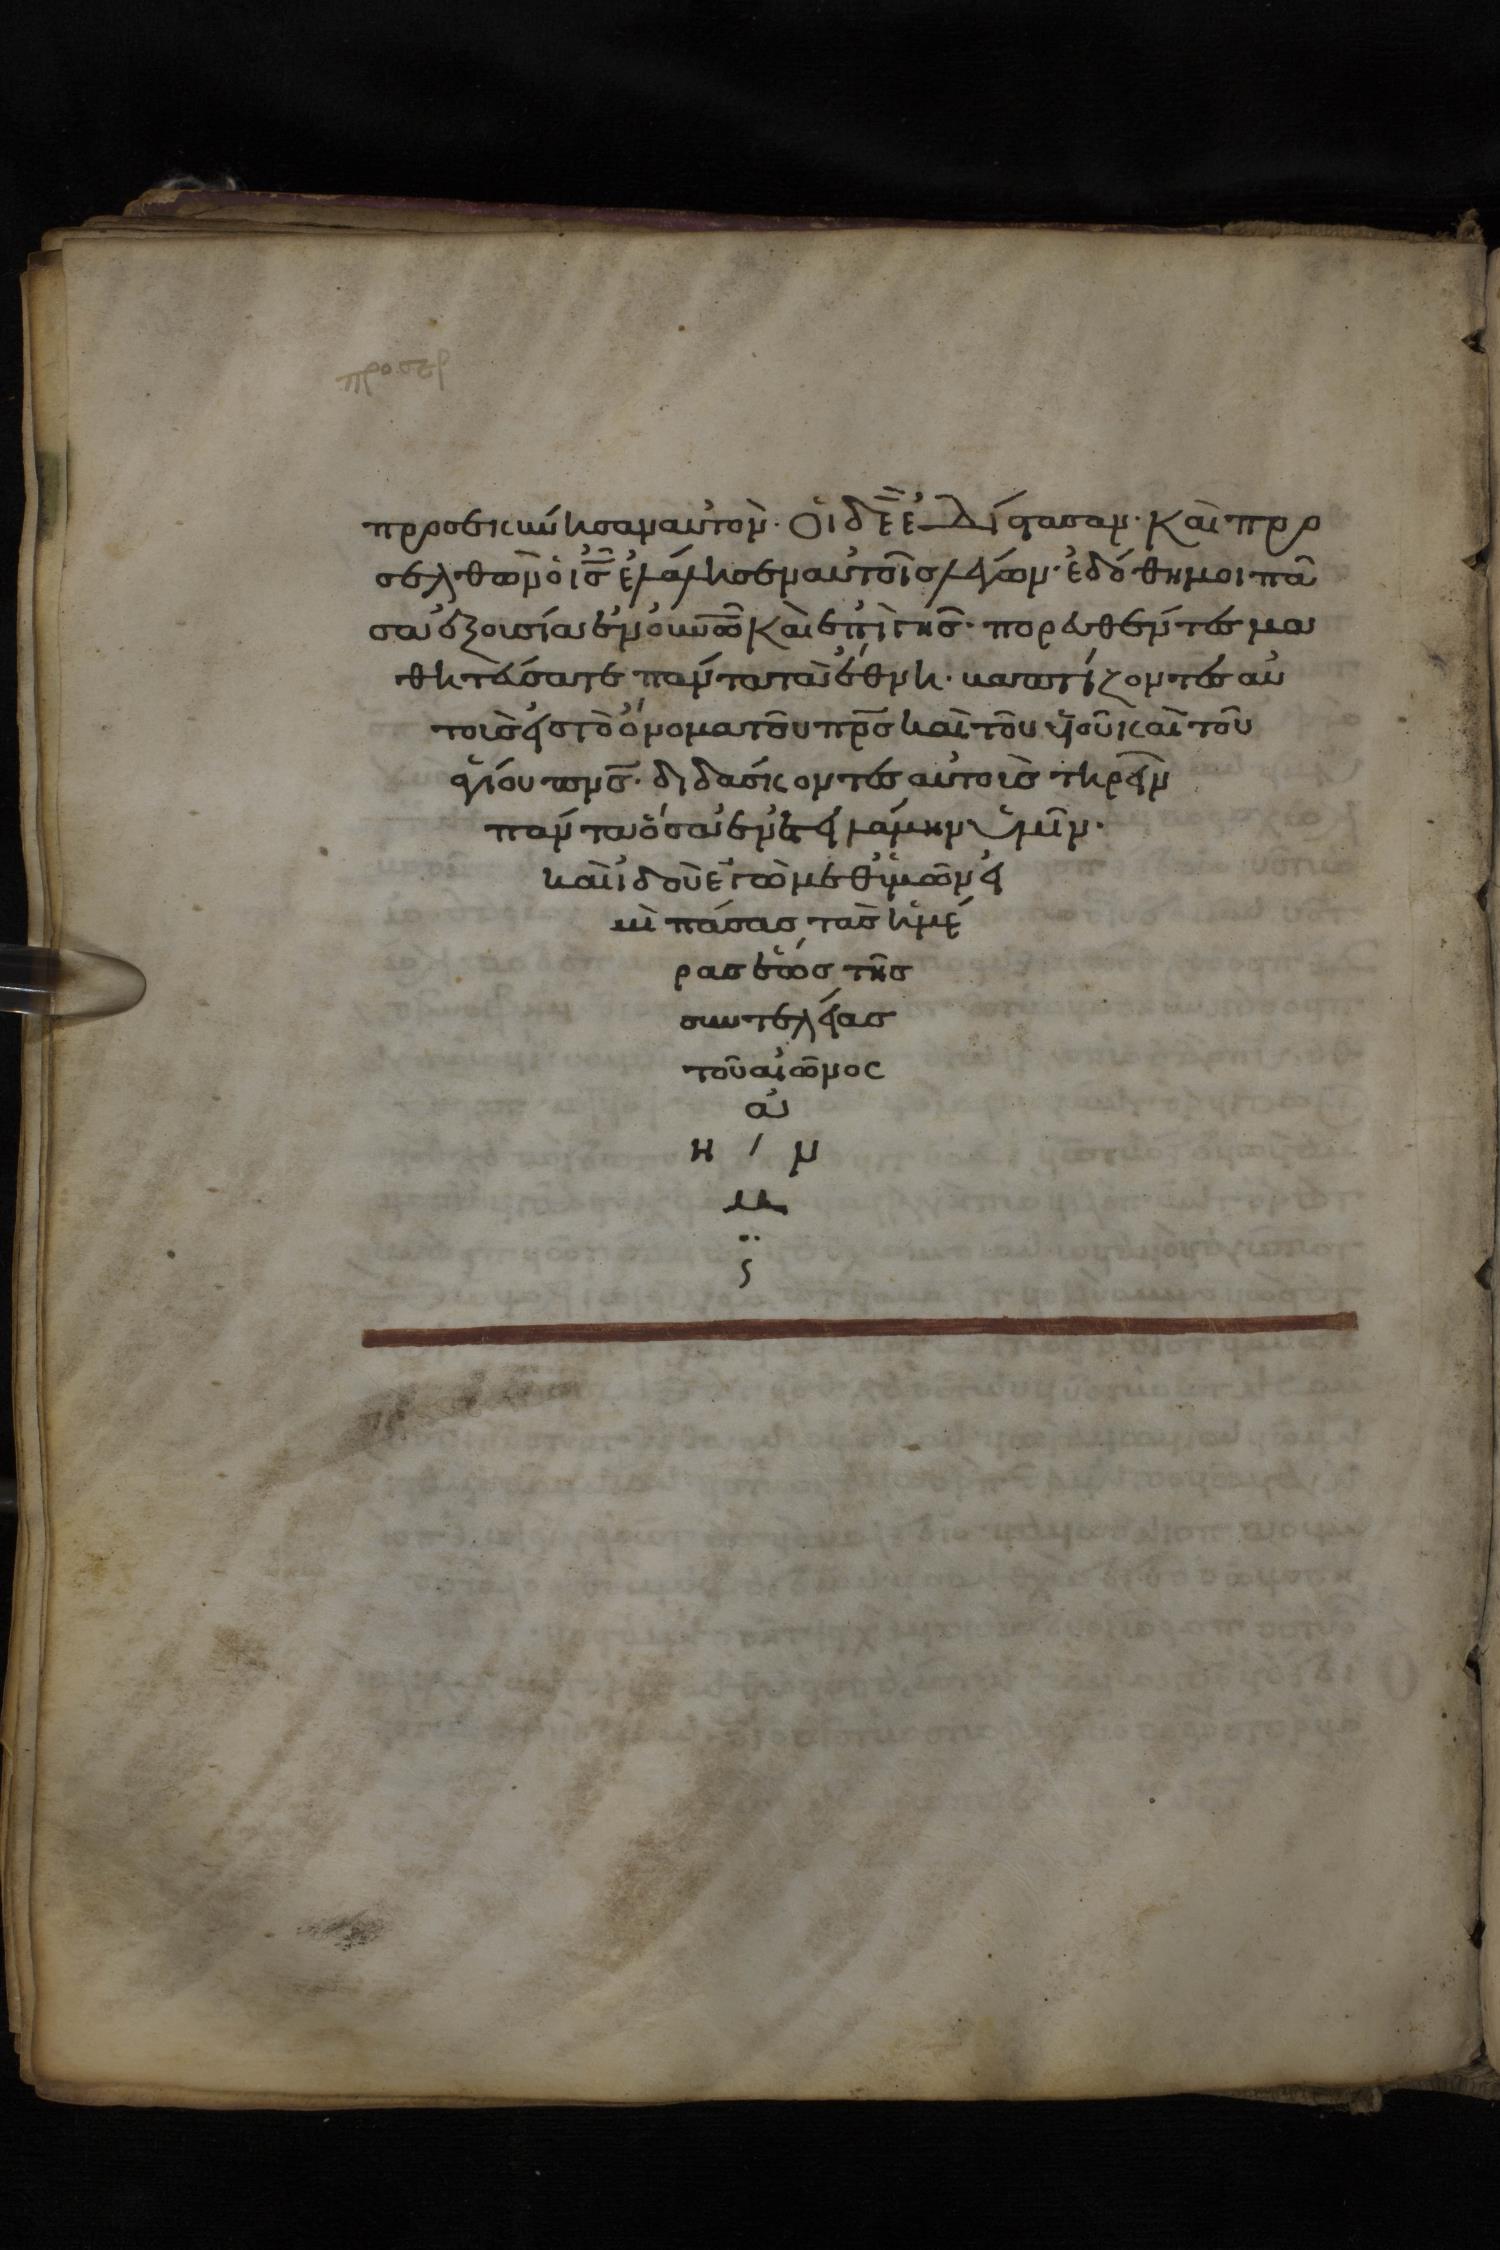 προσεκύνησαν αὐτὸν· Ὁι δὲ ἐδίστασαν· Καὶ προ
σελθὼν ὁ ις ἐλάλησεν αὐτοῖσ λέγων· ἐδόθη μοι πᾶ
σα ἐξουσία ἐν ουνω Καὶ ἐπὶ γησ· πορευθέντεσ μα
θητεύσατε πάντα τὰ ἔθνη· βαπτίζοντεσ αὐ
τοὺσ εἰσ τὸ ὄνομα τοῦ πρσ καὶ τοῦ υἱοῦ καὶ τοῦ
ἁγίου πνσ· διδάσκοντεσ αὐτοὺσ τηρεῖν
πάντα ὅσα ἐνετειλάμην ὑμῖν·
καὶ ἰδοὺ ἐγὼ μεθ ὑμῶν εἰ
μὶ πάσασ τὰσ ἡμέ
ρασ ἕωσ τῆσ
συντελείασ
τοῦ αἰῶνος
ἀ
η ν
μ